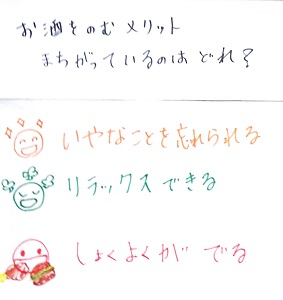 お酒をのむメリット
まちがっているのはどれ?
いやなことを忘れられる
リラックスできる
しょくよくがでる